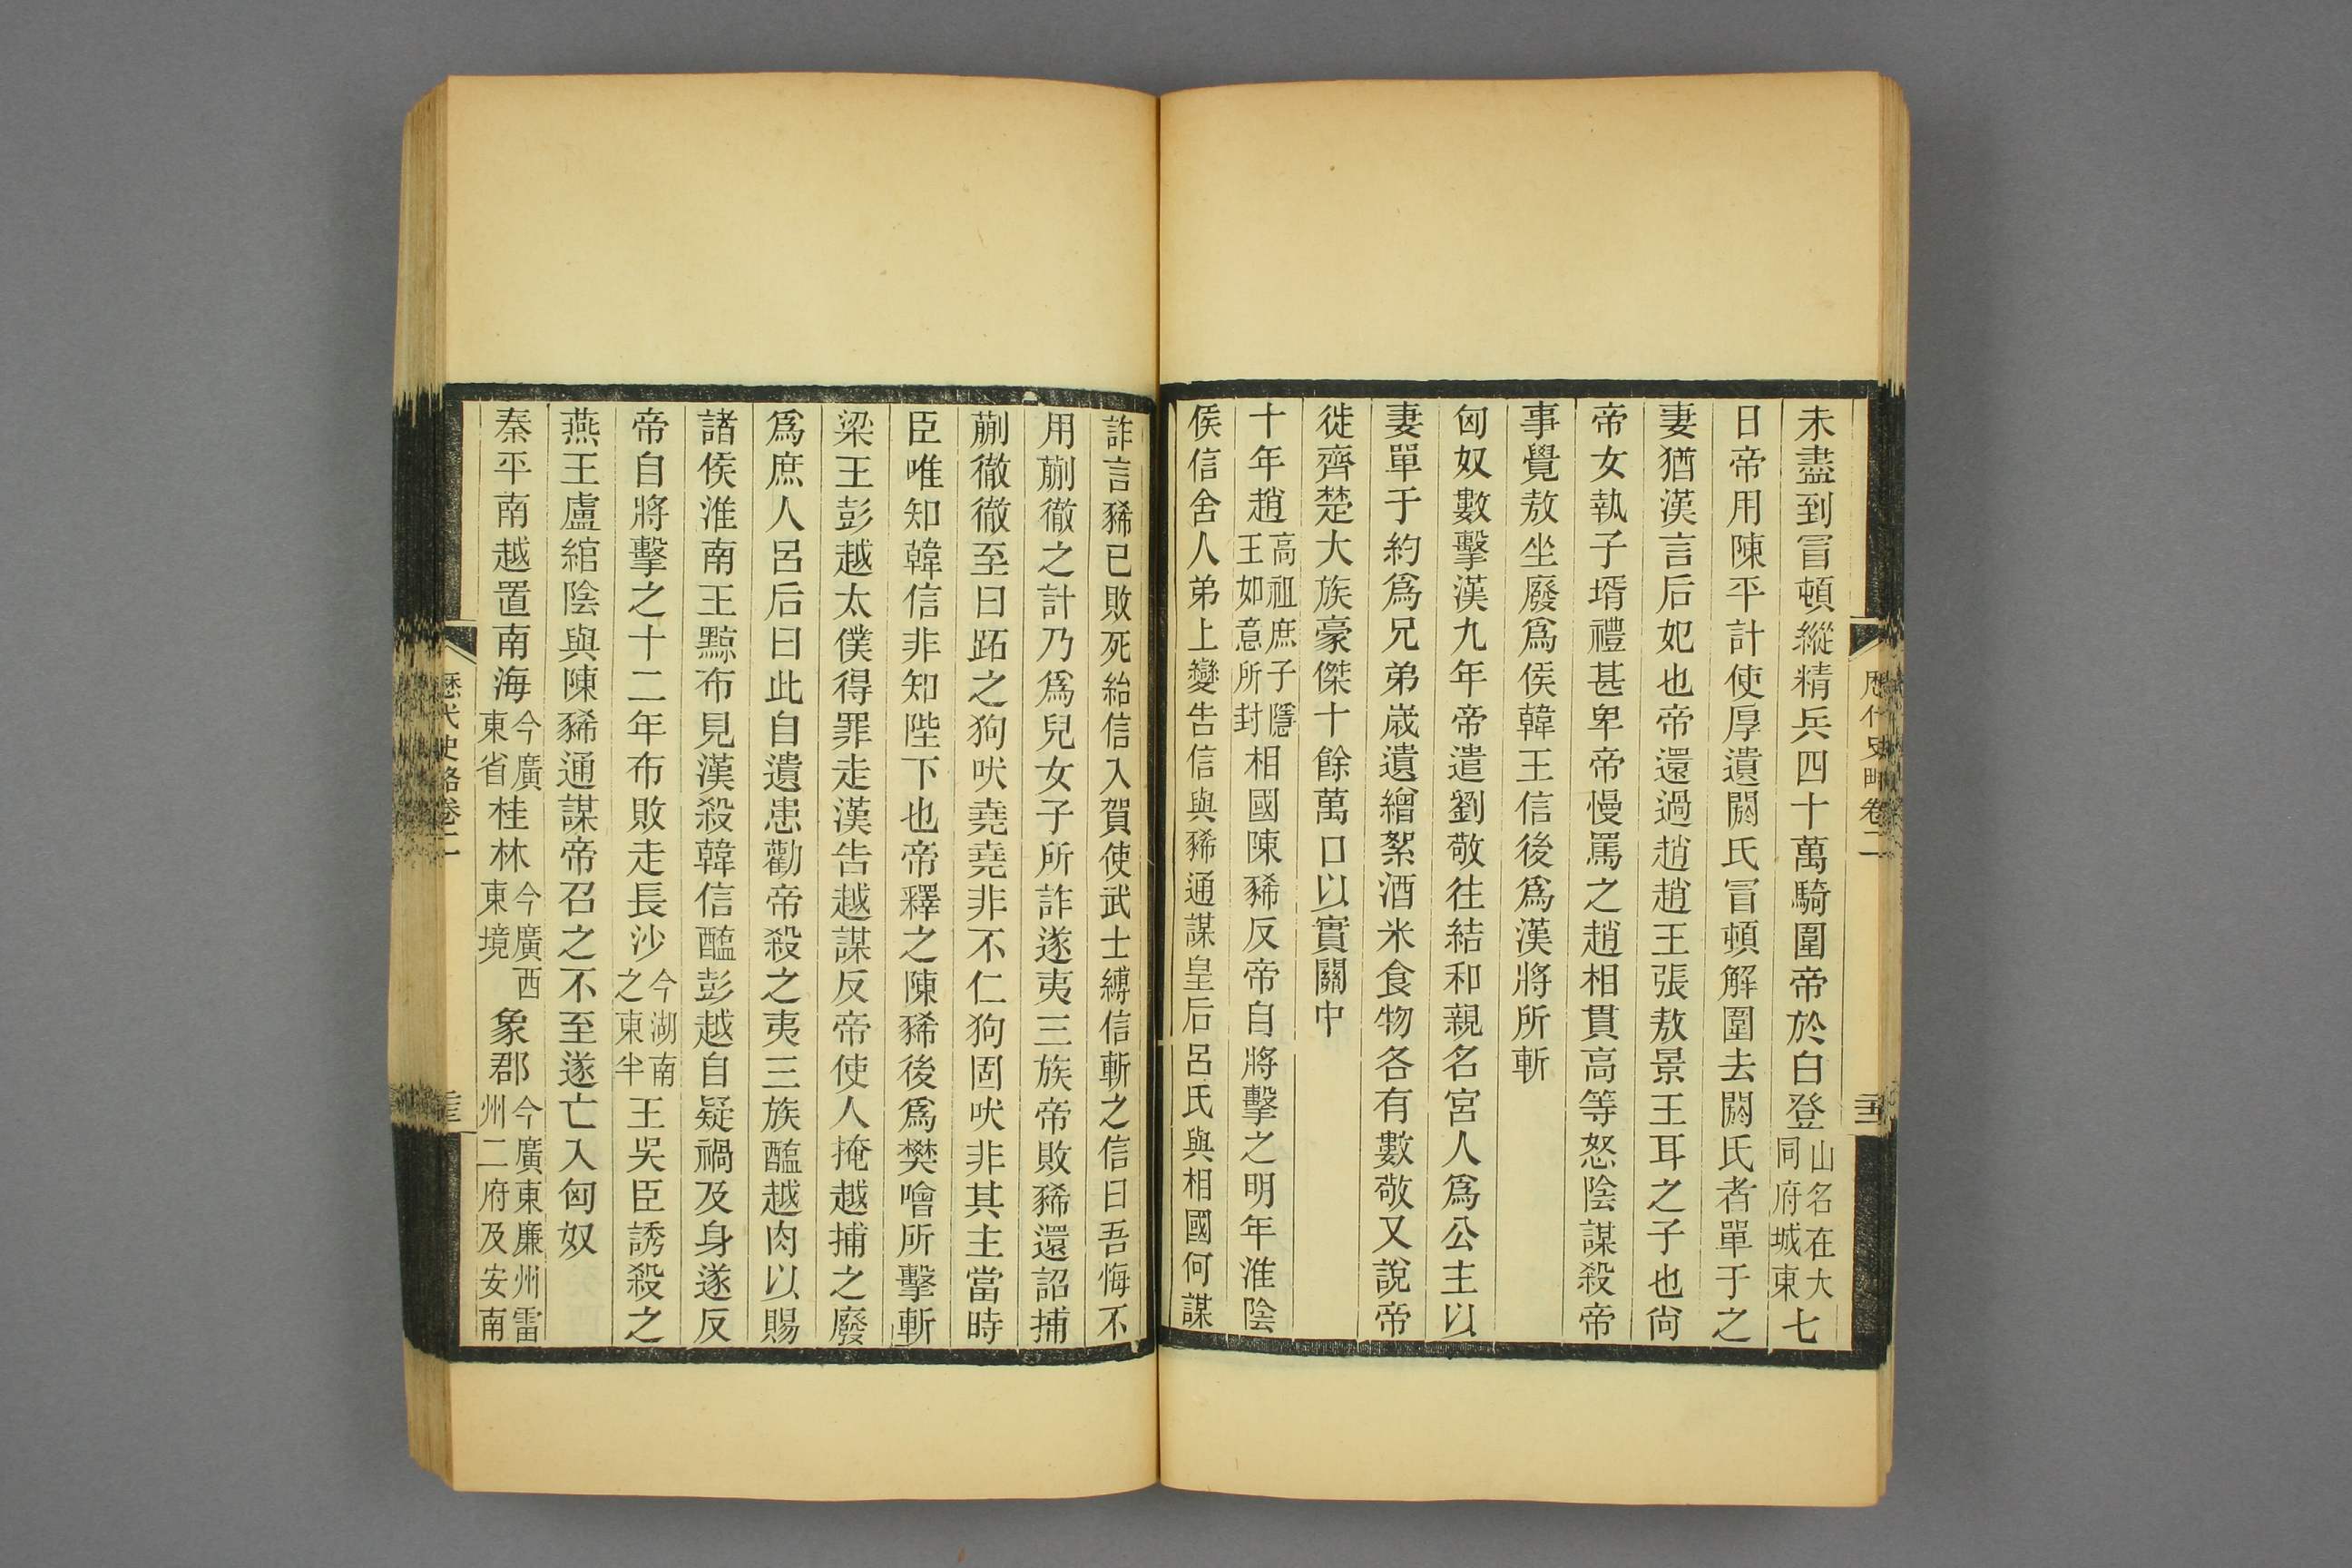 未盡到冒頓縱精兵四十萬騎圍帝於白登山名在大同府城東七
日帝用陳平計使厚遺閼氏冒頓解圍去閼氏者單于之
妻猶漢言后妃也帝還過趙趙王張敖景王耳之子也尙
帝女執子壻禮甚卑帝慢罵之趙相貫高等怒陰謀殺帝
事覺敖坐廢爲侯韓王信後爲漢將所斬
匈奴數擊漢九年帝遣劉敬往結和親名宮人爲公主以
妻單于約爲兄弟歲遺繒絮酒米食物各有數敬又說帝
徙齊楚大族豪傑十餘萬口以實關中
十年趙高祖庶子隱王如意所封相國陳豨反帝自將擊之明年淮陰
侯信舍人弟上變告信與豨通謀皇后呂氏與相國何謀
詐言豨已敗死紿信入賀使武士縛信斬之信曰吾悔不
用蒯徹之計乃爲兒女子所詐遂夷三族帝敗豨還詔捕
蒯徹徹至曰跖之狗吠堯堯非不仁狗固吠非其主當時
臣唯知韓信非知陛下也帝釋之陳豨後爲樊噲所擊斬
梁王彭越太僕得罪走漢告越謀反帝使人掩越捕之廢
爲庶人呂后曰此自遺患勸帝殺之夷三族醢越肉以賜
諸侯淮南王黥布見漢殺韓信醢彭越自疑禍及身遂反
帝自將擊之十二年布敗走長沙今湖南之東半王吳臣誘殺之
燕王盧綰陰與陳豨通謀帝召之不至遂亡入匈奴
秦平南越置南海今廣東省桂林今廣西東境象郡今廣東廉州雷州二府及安南
歷代史略卷二